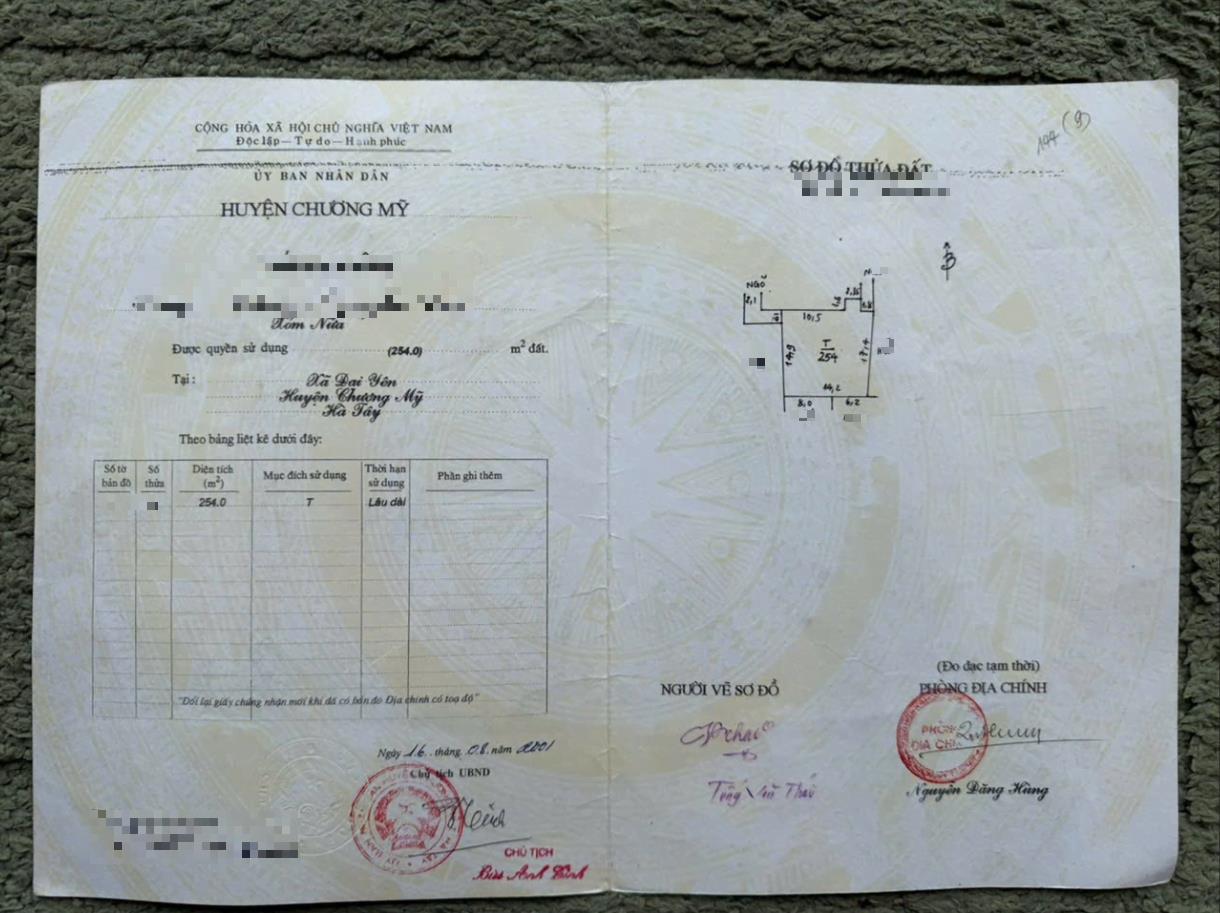 CỘNG HÒA XÃ HỘI CHỦ NGHĨA VIỆT NAM
Độc lập - Tự do - Hạnh phúc
ỦY BAN NHÂN DÂN
HUYỆN CHƯƠNG MỸ
Xóm Nứa
Được quyền sử dụng (254.0) m² đất.
Tại: Xã Đại Yên
Huyện Chương Mỹ
Hà Tây
Theo bảng liệt kê dưới đây:
Số tờ bản đồ Số thửa Diện tích (m²) Mục đích sử dụng Thời hạn sử dụng Phần ghi thêm
254.0 T Lâu dài
"Đổi lại giấy chứng nhận mới khi đã có bản đo Địa chính có toạ độ"
Ngày 16. tháng .08. năm 2001
Chủ tịch UBND
CHỦ TỊCH
144 (9)
SƠ ĐỒ THỬA ĐẤT
B
NGÕ
2,1
10,5
14,9
T
254
17,4
14,2
8,0 6,2
NGƯỜI VẼ SƠ ĐỒ
(Đo đạc tạm thời)
PHÒNG ĐỊA CHÍNH
PHÒNG
ĐỊA CHÍNH
Nguyễn Đăng Hùng